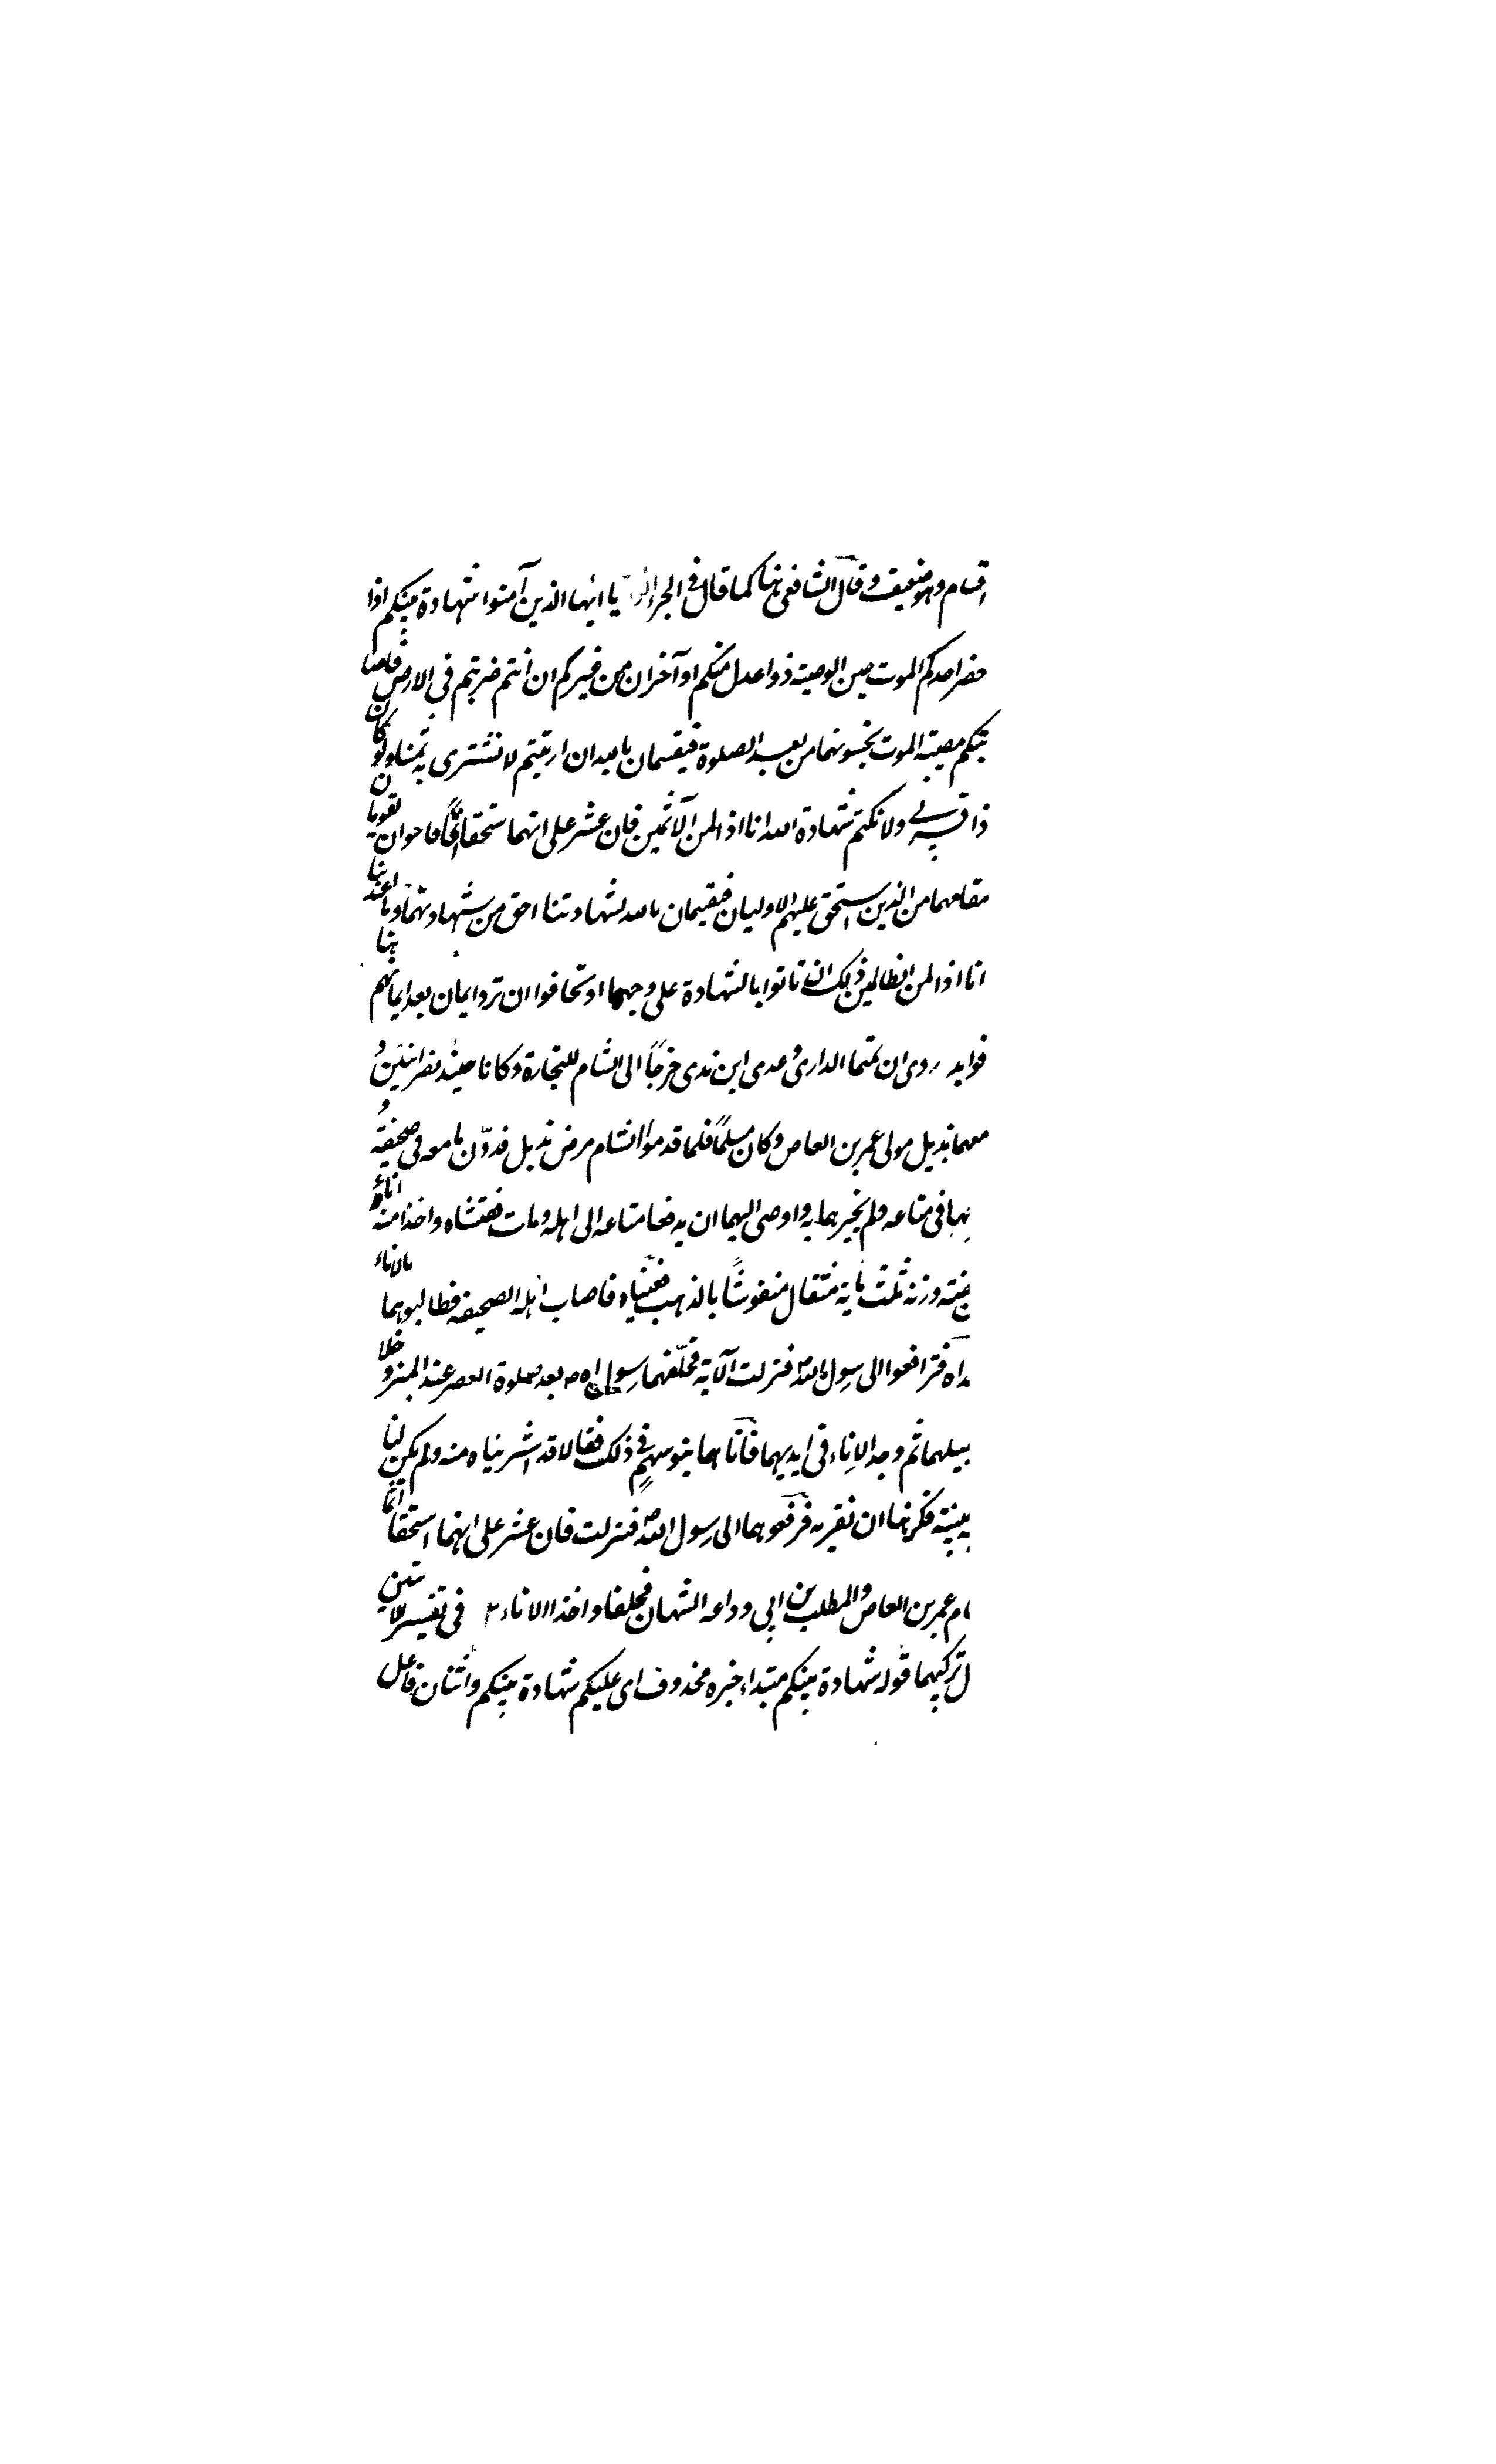 اقسام وهو ضعيف وقال الشافعى هنا كما قال فى الجزاء يا ايها الذين آمنوا شهادة بينكم اذا
حضر احدكم الموت حين الوصية ذوا عدل منكم او آخران من غيركم ان انتم ضربتم فى الارض فاصا
بتكم مصيبة الموت تحبسونهما من بعد الصلوة فيقسمان بالله ان ارتبتم لا نشترى به ثمنا ولو كان
ذا قربى ولا نكتم شهادة الله انا اذا لمن الآثمين فان عثر على انهما استحقا اثمًا فاخران يقومان
مقامهما من الذين استحق عليهم الاوليان فيقسمان بالله لشهادتنا احق من شهادتهما وما اعتدينا
انا اذا لمن الظالمين ذلك ادنى ان ياتوا بالشهادة على وجهها او يخافوا ان ترد ايمان بعد ايمانهم هنا
فوايد روى ان تميما الدارى وعدى ابن ندى خرجا الى الشام للتجارة وكانا حينئذ نصرانيّين و
معهما بديل مولى عمر بن العاص وكان مسلمًا فلما قدموا الشام مرض بديل فدوّن ما معه فى صحيفة و
بها فى متاعه ولم يخبرهما به واوصى اليهما ان يدفعا متاعه الى اهله ومات ففتشاه واخذا منه اناء
فضة وزنه ثلث ماية مثقال منقوشًا بالذهب فغيباه فاصاب اهله الصحيفة فطالبوهما بالاناء
داه فترافعوا الى رسول الله ص فنزلت الآية فحلّفهما رسول الله ص بعد صلوة العصر عند المنبر وخلا
بيلهما ثم وجد الاناء فى ايديهما فاتاهما بنو سهم فى ذلك فقالا قد اشتريناه منه ولم يكن لنا
به بينة فكرهنا ان نقر به فرفعوهما الى رسول الله ص فنزلت فان عثر على انهما استحقا اثما
ام عمر بن العاص والمطلب بن ابى وداعه السهمان فحلفا واخذا الاناء ٢ فى تفسير الآيتين
ل تركيبهما قوله شهادة بينكم مبتداء خبره محذوف اى عليكم شهادة بينكم واثنان فاعل